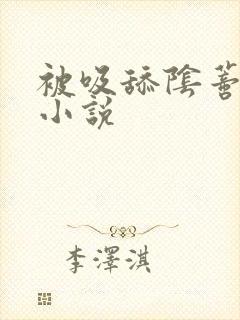 被吸舔陰蒂
小說
李澤淇